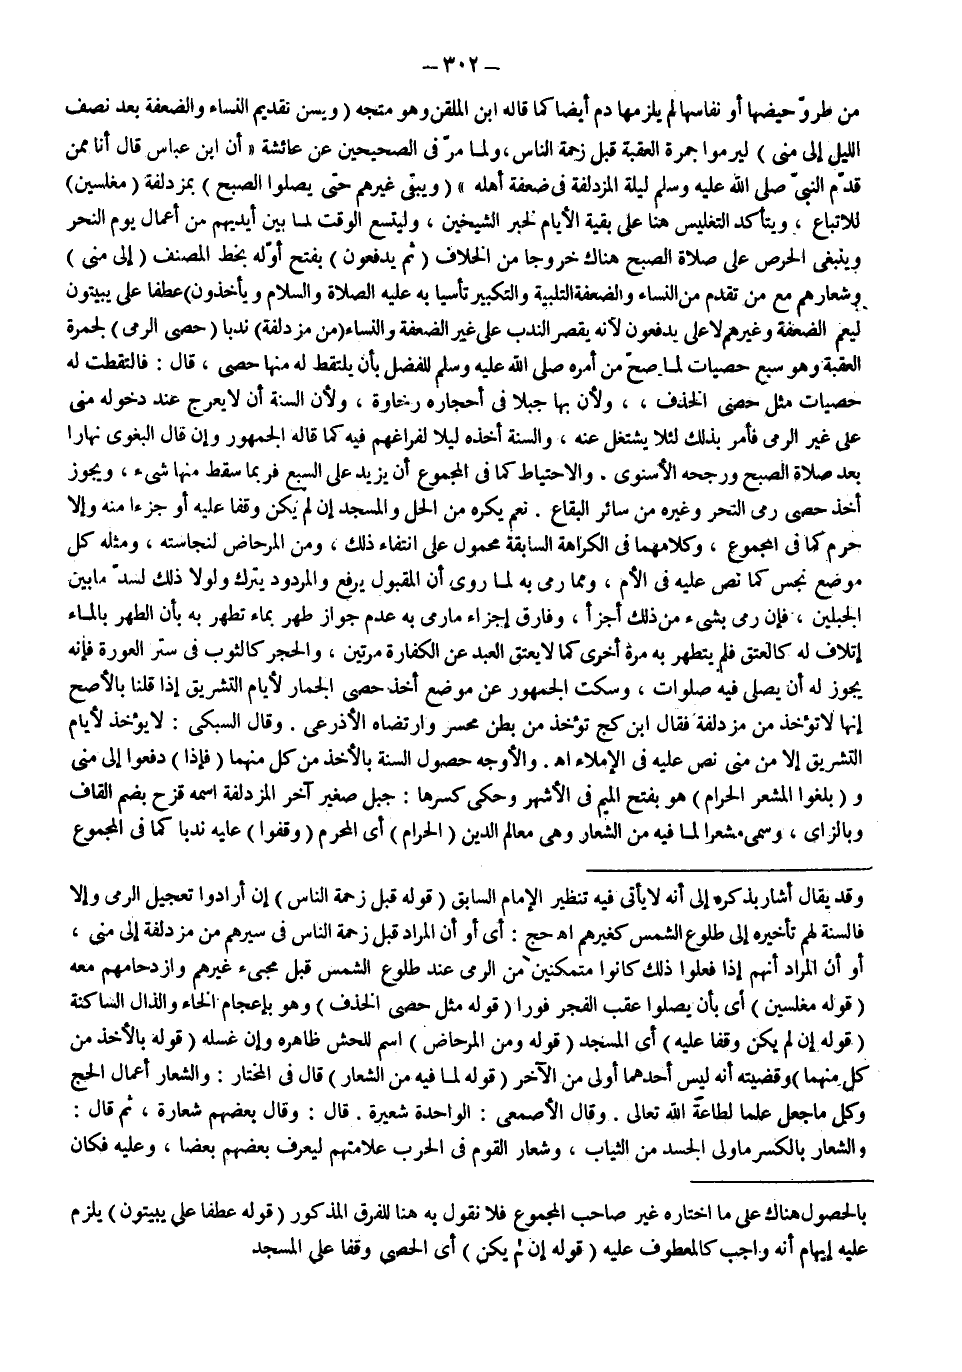 – ٣٠٢ –
من طروّ حيضها أو نفاسها لم يلزمها دم أيضا كما قاله ابن الملقن وهو متجه ( ويسن تقديم النساء والضعفة بعد نصف
الليل إلى منى ) ليرموا جمرة العقبة قبل زحمة الناس ، ولما مرّ فى الصحيحين عن عائشة « أن ابن عباس قال أنا ممن
قدّم النبىّ صلى الله عليه وسلم ليلة المزدلفة فى ضعفة أهله » ( ويبقى غيرهم حتى يصلوا الصبح ) بمزدلفة ( مغلسين)
للاتباع ، ويتأكد التغليس هنا على بقية الأيام لخبر الشيخين ، وليتسع الوقت لما بين أيديهم من أعمال يوم النحر
وينبغى الحرص على صلاة الصبح هناك خروجا من الخلاف ( ثم يدفعون ) بفتح أوّله بخط المصنف ( إلى منى )
وشعارهم مع من تقدم من النساء والضعفة التلبية والتكبير تأسيا به عليه الصلاة والسلام ويأخذون) عطفا على يبيتون
ليعم الضعفة وغيرهم لاعلى يدفعون لأنه يقصر الندب على غير الضعفة والنساء (من مزدلفة) ندبا ( حصى الرمى ) لجمرة
العقبة وهو سبع حصيات لما صحّ من أمره صلى الله عليه وسلم للفضل بأن يلتقط له منها حصى ، قال : فالتقطت له
حصيات مثل حصى الخذف ، ، ولأن بها جبلا فى أحجاره رخاوة ، ولأن السنة أن لايعرج عند دخوله منى
على غير الرمى فأمر بذلك لئلا يشتغل عنه ، والسنة أخذه ليلا لفراغهم فيه كما قاله الجمهور وإن قال البغوى نهارا
بعد صلاة الصبح ورجحه الأسنوى . والاحتياط كما فى المجموع أن يزيد على السبع فربما سقط منها شىء ، ويجوز
أخذ حصى رمى النحر وغيره من سائر البقاع . نعم يكره من الحل والمسجد إن لم يكن وقفا عليه أو جزءا منه وإلا
حرم كما فى المجموع ، وكلامهما فى الكراهة السابقة محمول على انتفاء ذلك ، ومن المرحاض لنجاسته ، ومثله كل
موضع نجس كما نص عليه فى الأم ، ومما رمى به لما روى أن المقبول يرفع والمردود يترك ولولا ذلك لسدّ مابين
الجبلين ، فإن رمى بشىء من ذلك أجزأ ، وفارق إجزاء مارمى به عدم جواز طهر بماء تطهر به بأن الطهر بالماء
إتلاف له كالعتق فلم يتطهر به مرة أخرى كما لايعتق العبد عن الكفارة مرتين ، والحجر كالثوب فى ستر العورة فإنه
يجوز له أن يصلى فيه صلوات ، وسكت الجمهور عن موضع أخذ حصى الجمار لأيام التشريق إذا قلنا بالأصح
إنها لاتؤخذ من مزدلفة فقال ابن كج تؤخذ من بطن محسر وارتضاه الأذرعى . وقال السبكى : لايؤخذ لأيام
التشريق إلا من منى نص عليه فى الإملاء اه . والأوجه حصول السنة بالأخذ من كل منهما ( فإذا ) دفعوا إلى منى
و ( بلغوا المشعر الحرام ) هو بفتح الميم فى الأشهر وحكى كسرها : جبل صغير آخر المزدلفة اسمه قزح بضم القاف
وبالزاى ، وسمى مشعرا لما فيه من الشعار وهى معالم الدين ( الحرام ) أى المحرم ( وقفوا ) عليه ندبا كما فى المجموع
وقد يقال أشار بذكره إلى أنه لايأتى فيه تنظير الإمام السابق ( قوله قبل زحمة الناس ) إن أرادوا تعجيل الرمى وإلا
فالسنة لهم تأخيره إلى طلوع الشمس كغيرهم اه حج : أى أو أن المراد قبل زحمة الناس فى سيرهم من مزدلفة إلى منى ،
أو أن المراد أنهم إذا فعلوا ذلك كانوا متمكنين من الرمى عند طلوع الشمس قبل مجىء غيرهم وازدحامهم معه
( قوله مغلسين ) أى بأن يصلوا عقب الفجر فورا ( قوله مثل حصى الخذف ) وهو بإعجام الخاء والذال الساكنة
( قوله إن لم يكن وقفا عليه ) أى المسجد ( قوله ومن المرحاض ) اسم للحش ظاهره وإن غسله ( قوله بالأخذ من
كل منهما ) وقضيته أنه ليس أحدهما أولى من الآخر ( قوله لما فيه من الشعار ) قال فى المختار : والشعار أعمال الحج
وكل ماجعل علما لطاعة الله تعالى . وقال الأصمعى : الواحدة شعيرة . قال : وقال بعضهم شعارة ، ثم قال :
والشعار بالكسر ماولى الجسد من الثياب ، وشعار القوم فى الحرب علامتهم ليعرف بعضهم بعضا ، وعليه فكان
بالحصول هناك على ما اختاره غير صاحب المجموع فلا نقول به هنا للفرق المذكور ( قوله عطفا على يبيتون ) يلزم
عليه إيهام أنه واجب كالمعطوف عليه ( قوله إن لم يكن ) أى الحصى وقفا على المسجد